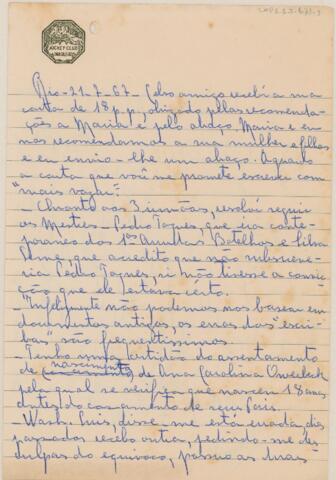 JOCKEY CLUB
Rio-21-7-67- Celso amigo recebi a sua
carta de 18 p.p., obrigado pelas recomenda-
ções a Maria e pelo abraço Maria e eu
nos recomendamos a sua mulher e filhos
e eu envio-lhe um abraço. Aguardo
a carta que você me promete escrever com
"mais vagar".
- Quanto aos 3 irmãos, resolvi seguir
os Mestres - Pedro Taques, que era contem-
poraneo dos 1os Botelhos e Silva
Leme, que acredito que não
Pedro Taques, si não tivesse a convic-
ção que ele estava certo.
- Infelizmente não podemos nos basear em
documentos antigos, os erros dos "escri-
bas" são frequentissimos.
- Tenho uma certidão do assentamento
de nascimento de Ana Carolina
pela qual se verifica que nasceu 18 anos
antes do casamento de seus Pais.
- Wash. Luis, disse-me está errada, dias
passados recebo outra, pedindo-me des-
culpas do equivoco, passou as mais